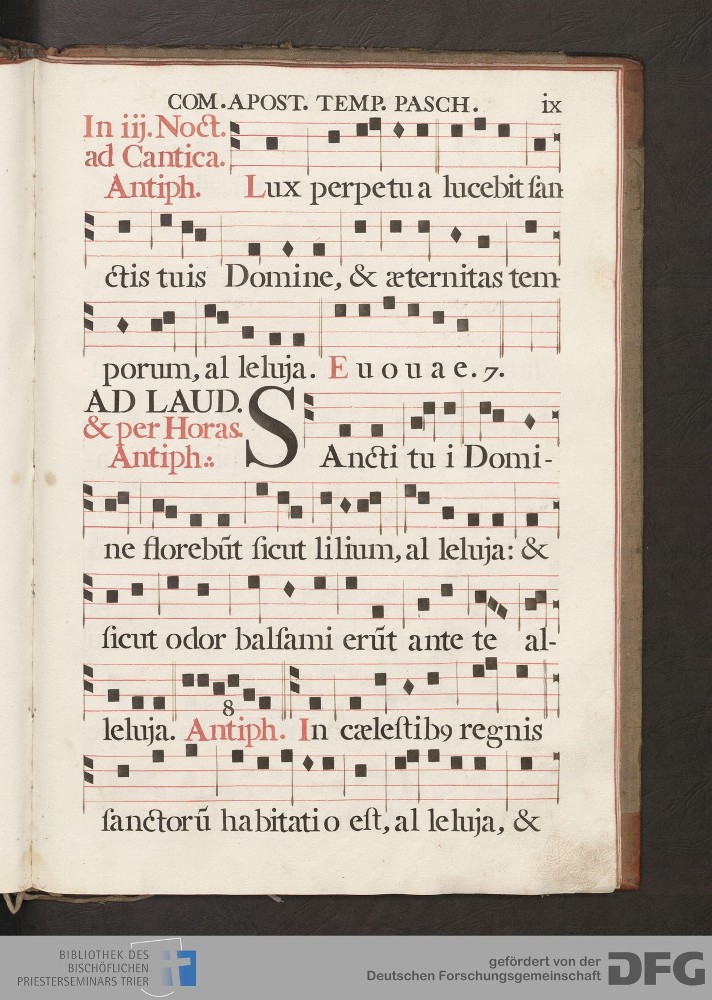 COM. APOST. TEMP. PASCH. ix
In iij. Noct.
ad Cantica.
Antiph. Lux perpetu a lucebit ſan
ctis tuis Domine, & æternitas tem
porum, al leluja. E u o u a e. 7.
AD LAUD.
& per Horas.
Antiph.: SAncti tu i Domi-
ne florebūt ſicut lilium, al leluja: &
ſicut odor balſami erūt ante te al-
8
leluja. Antiph. In cæleſtib9 regnis
ſanctorū habitati o eſt, al leluja, &
BIBLIOTHEK DES
BISCHÖFLICHEN
PRIESTERSEMINARS TRIER
gefördert von der
Deutschen Forschungsgemeinschaft DFG